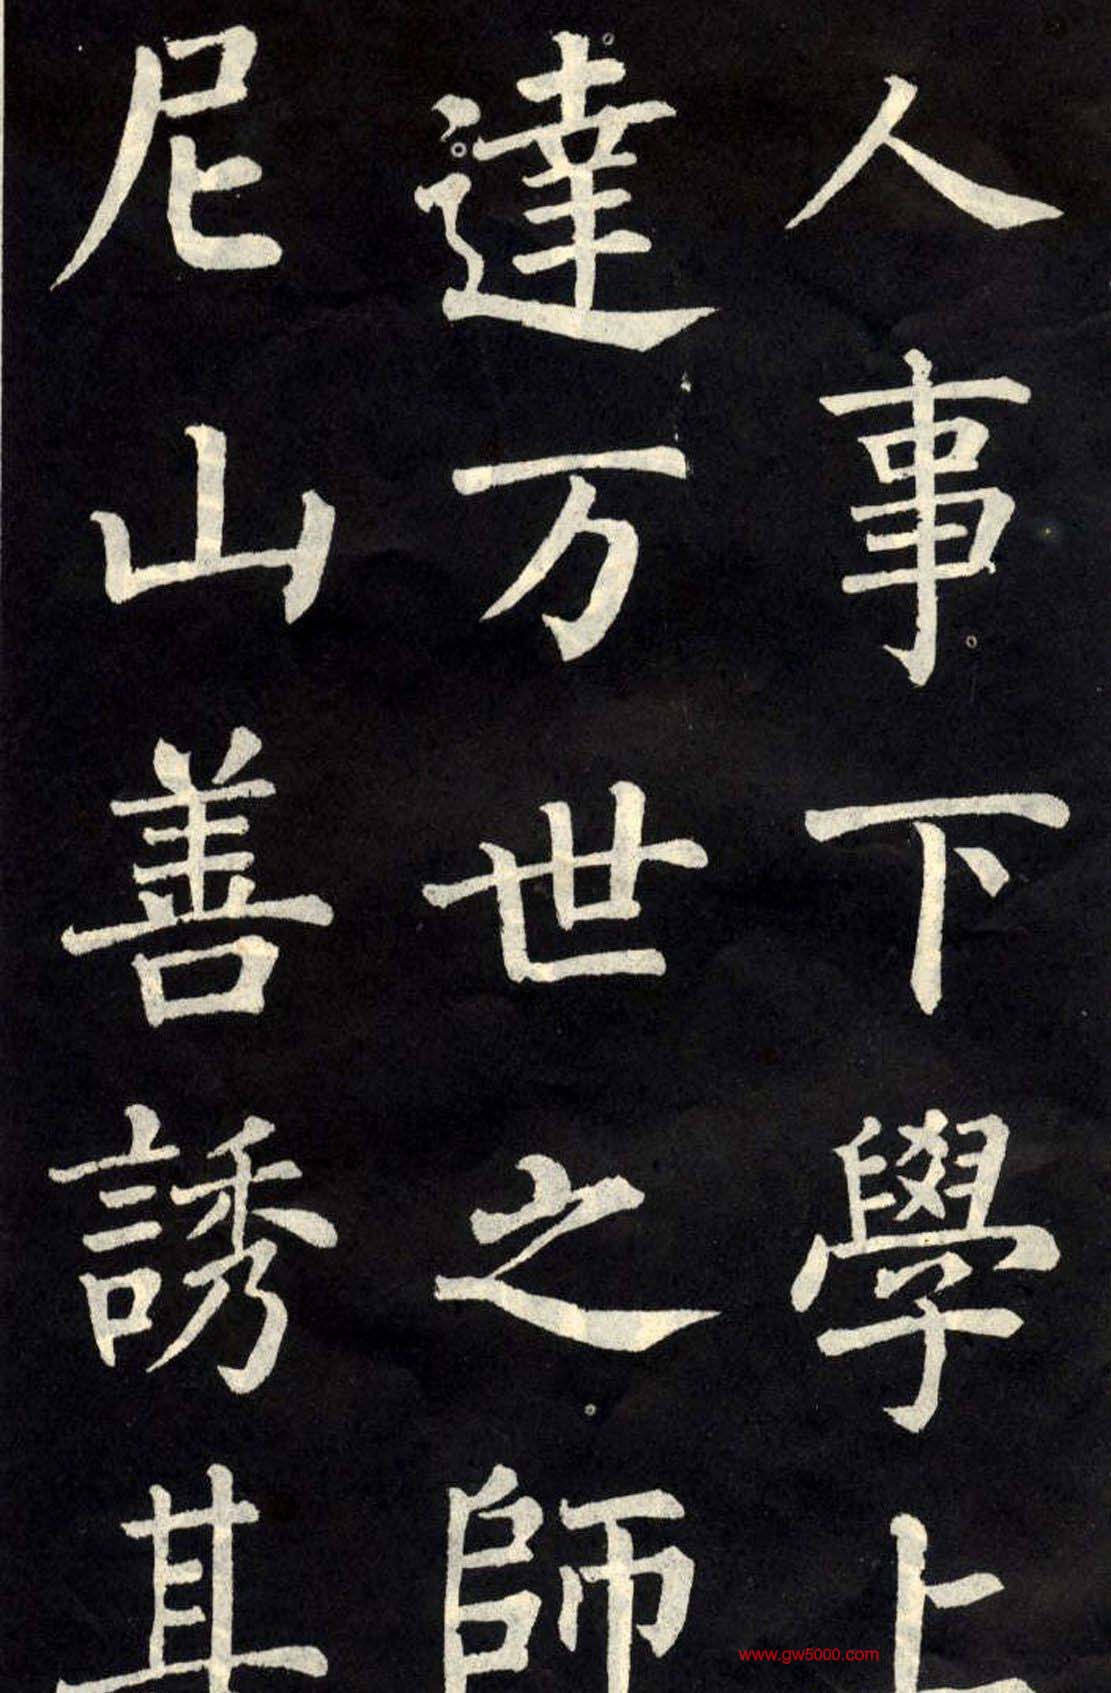 人事下學上
達万世之師
尼山善誘其
www.gw5000.com